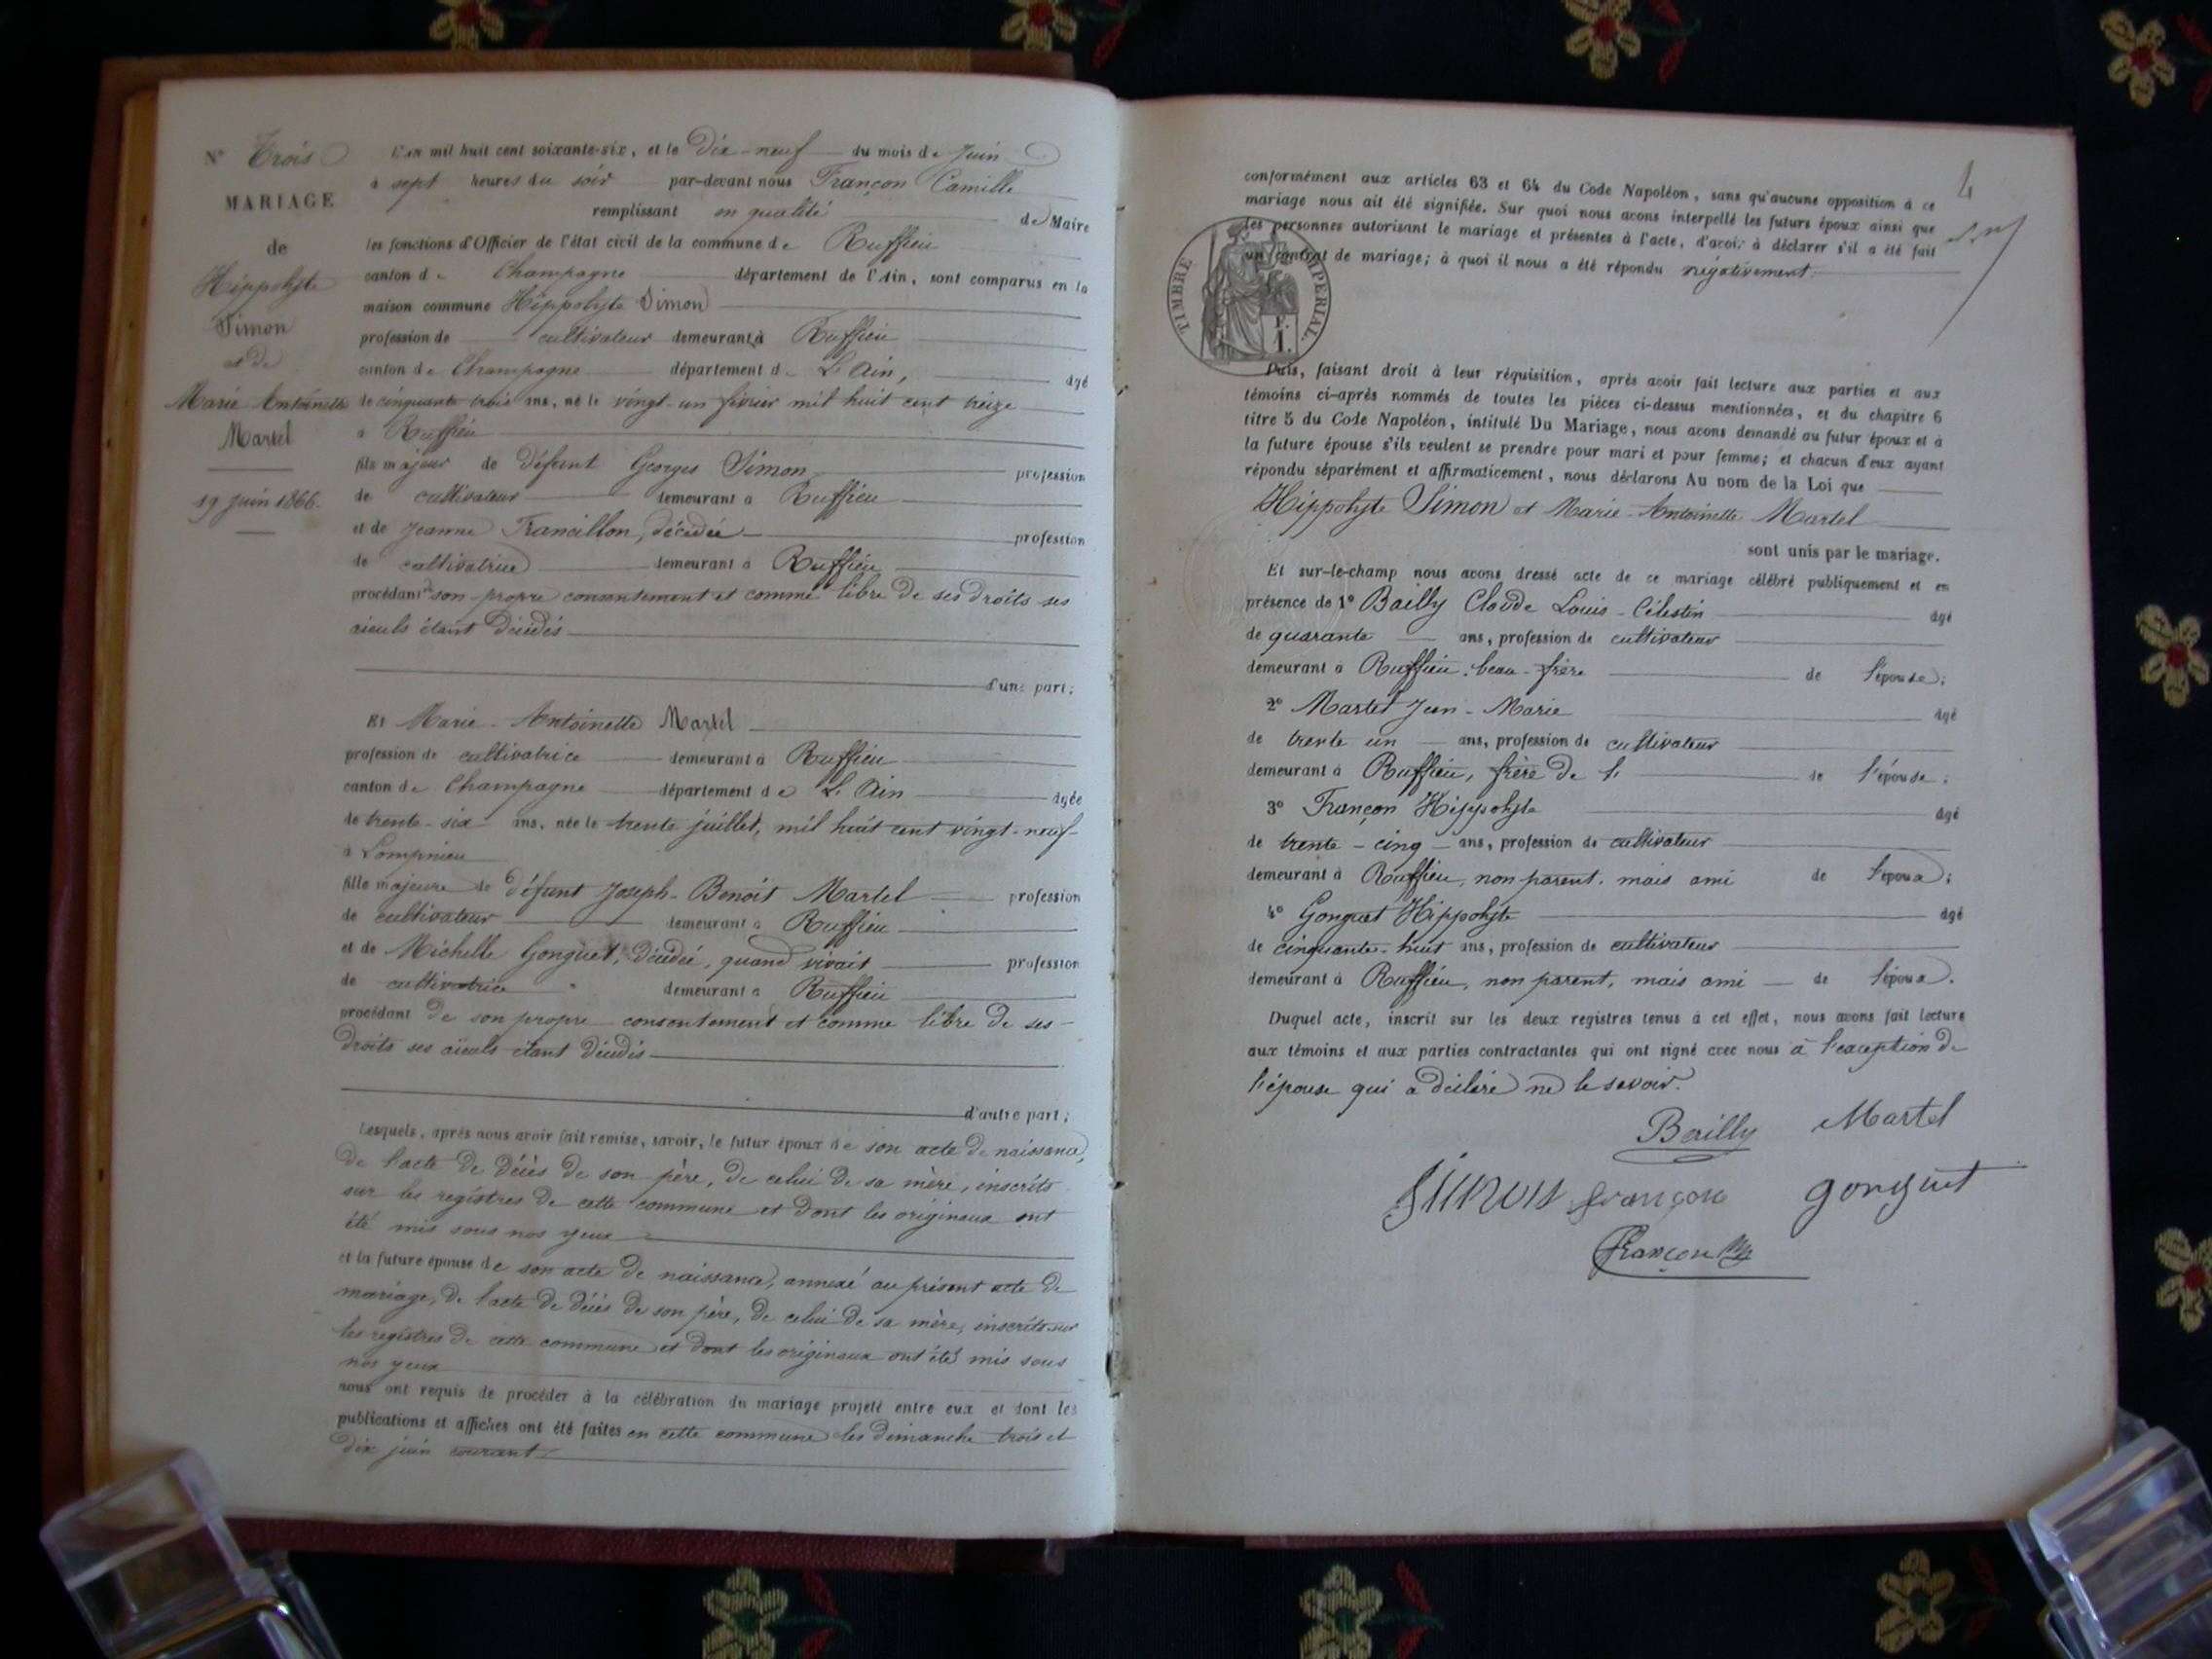 N° Trois
MARIAGE
de
Hippolyte
Simon
et de
Marie Antoinette
Martel
19 juin 1866.
L'an mil huit cent soixante-six, et le dix-neuf du mois de Juin
à sept heures du soir par-devant nous Françon Camille
remplissant en qualité de Maire
les fonctions d'Officier de l'état civil de la commune de Ruffieu
canton de Champagne département de l'Ain, sont comparus en la
maison commune Hippolyte Simon
profession de cultivateur demeurant à Ruffieu
canton de Champagne département de L'Ain, âgé
de cinquante trois ans, né le vingt-un février mil huit cent treize
à Ruffieu
fils majeur de défunt Georges Simon profession
de cultivateur demeurant à Ruffieu
et de Jeanne Francillon, décédée profession
de cultivatrice demeurant à Ruffieu
procédant de son propre consentement et comme libre de ses droits ses
aieuls étant décédés
d'une part;
Et Marie-Antoinette Martel
profession de cultivatrice demeurant à Ruffieu
canton de Champagne département de L'Ain âgée
de trente-six ans, née le trente juillet, mil huit cent vingt-neuf
à Lompnieu
fille majeure de défunt Joseph-Benoit Martel profession
de cultivateur demeurant à Ruffieu
et de Michelle Gonguet, décédée, quand vivait profession
de cultivatrice demeurant à Ruffieu
procédant de son propre consentement et comme libre de ses
droits ses aïeuls étant décédés
d'autre part;
Lesquels, après nous avoir fait remise, savoir, le futur époux de son acte de naissance,
de l'acte de décès de son père, de celui de sa mère, inscrits
sur les registres de cette commune et dont les originaux ont
été mis sous nos yeux
et la future épouse de son acte de naissance, annexé au présent acte de
mariage, de l'acte de décès de son père, de celui de sa mère, inscrits sur
les registres de cette commune et dont les originaux ont été mis sous
nos yeux
nous ont requis de procéder à la célébration du mariage projeté entre eux et dont les
publications et affiches ont été faites en cette commune les dimanche trois et
dix juin courant.
4
conformément aux articles 63 et 64 du Code Napoléon, sans qu'aucune opposition à ce
mariage nous ait été signifiée. Sur quoi nous avons interpellé les futurs époux ainsi que
les personnes autorisant le mariage et présentes à l'acte, d'avoir à déclarer s'il a été fait
un contrat de mariage; à quoi il nous a été répondu négativement.
TIMBRE IMPERIAL.
F.
1.
Puis, faisant droit à leur réquisition, après avoir fait lecture aux parties et aux
témoins ci-après nommés de toutes les pièces ci-dessus mentionnées, et du chapitre 6
titre 5 du Code Napoléon, intitulé Du Mariage, nous avons demandé au futur époux et à
la future épouse s'ils veulent se prendre pour mari et pour femme; et chacun d'eux ayant
répondu séparément et affirmativement, nous déclarons Au nom de la Loi que
Hippolyte Simon et Marie-Antoinette Martel
sont unis par le mariage.
Et sur-le-champ nous avons dressé acte de ce mariage célébré publiquement et en
présence de 1° Bailly Claude Louis-Célestin âgé
de quarante ans, profession de cultivateur
demeurant à Ruffieu, beau-frère de l'épouse;
2° Martel Jean-Marie âgé
de trente un ans, profession de cultivateur
demeurant à Ruffieu, frère de l' de l'épouse;
3° Françon Hippolyte âgé
de trente-cinq ans, profession de cultivateur
demeurant à Ruffieu, non parent, mais ami de l'époux;
4° Gonguet Hippolyte âgé
de cinquante-huit ans, profession de cultivateur
demeurant à Ruffieu, non parent, mais ami de l'époux.
Duquel acte, inscrit sur les deux registres tenus à cet effet, nous avons fait lecture
aux témoins et aux parties contractantes qui ont signé avec nous à l'exception de
l'épouse qui a déclaré ne le savoir.
Bailly Martel
Simon françon gonguet
Françon